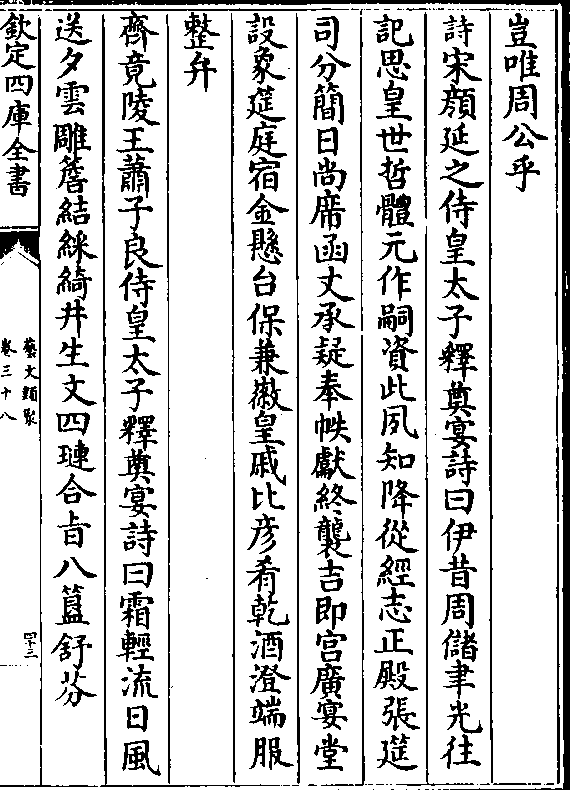 豈唯周公乎
詩宋顔延之侍皇太子釋奠宴詩曰伊昔周儲聿光往
記思皇世哲體元作嗣資此夙知降從經志正殿張筵
司分簡日尚席函丈承疑奉帙獻終襲吉即宫廣宴堂
設象筵庭宿金懸台保兼徽皇戚比彦肴乾酒澄端服
整弁
齊竟陵王蕭子良侍皇太子釋奠宴詩曰霜輕流日風
送夕雲雕簷結綵綺井生文四璉合㫖八簋舒芬
欽定四庫全書
藝文類聚
卷三十八
四十三